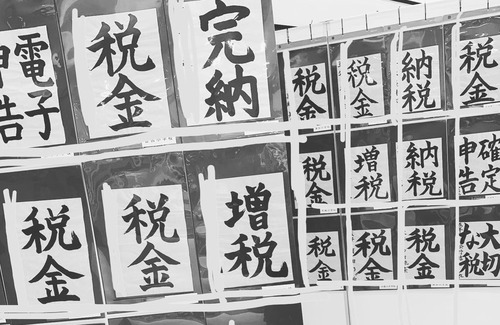 電子
申告
税金
完納
税金
税金
増税
税金
税金
納税
税金
税金
増税
納税
確定
申告
税金
税金
税金
大切
な税